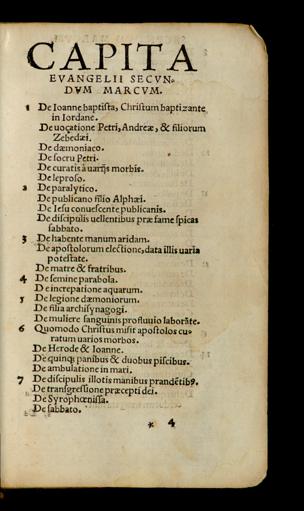 CAPITA
EVANGELII SECVN-
DVM MARCVM.
1 De Ioanne baptista, Christum baptizante
in Iordane.
De uocatione Petri, Andreæ, & filiorum
Zebedæi.
De dæmoniaco.
De socru Petri.
De curatis à uarijs morbis.
De leproso.
2 De paralytico.
De publicano filio Alphæi.
De Iesu conuescente publicanis.
De discipulis uellentibus præ fame spicas
sabbato.
3 De habente manum aridam.
De apostolorum electione, data illis uaria
potestate.
De matre & fratribus.
4 De semine parabola.
De increpatione aquarum.
5 De legione dæmoniorum.
De filia archisynagogi.
De muliere sanguinis profluuio laborāte.
6 Quomodo Christus misit apostolos cu-
ratum uarios morbos.
De Herode & Ioanne.
De quinq; panibus & duobus piscibus.
De ambulatione in mari.
7 De discipulis illotis manibus prandētibꝰ.
De transgressione præcepti dei.
De Syrophœnissa.
De sabbato.
* 4